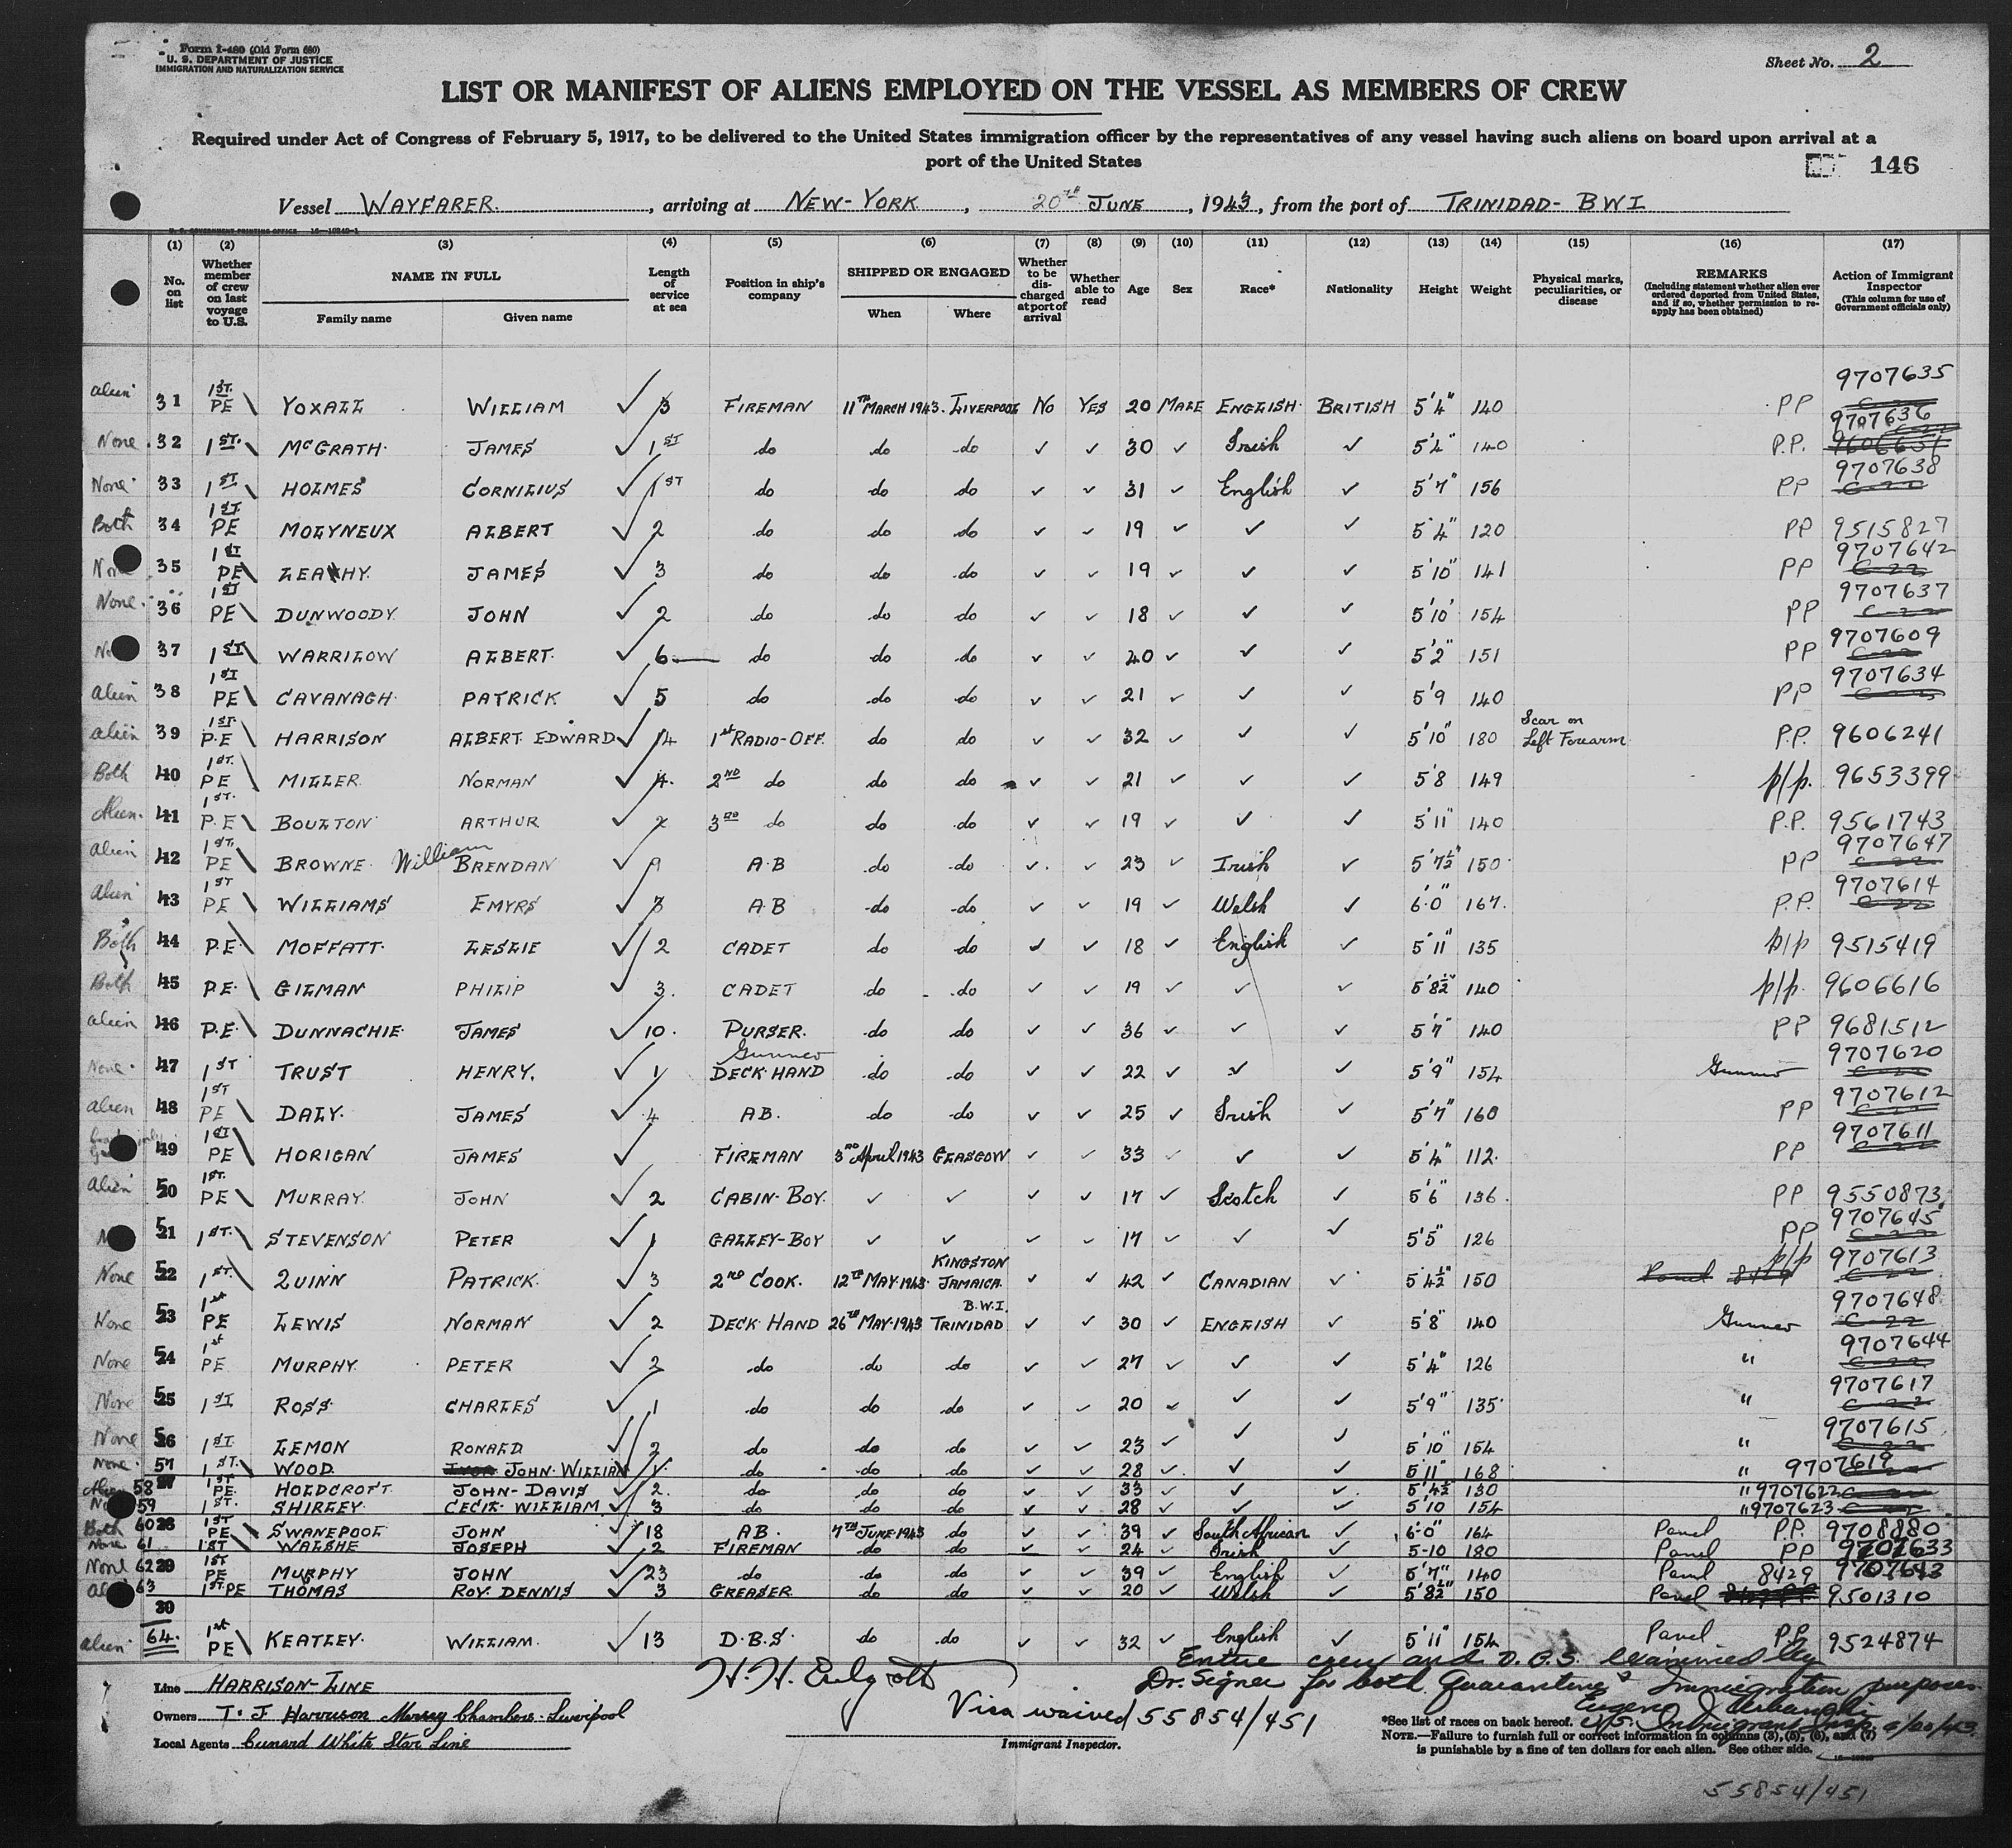 Form I-480 (Old Form 680)
U. S. DEPARTMENT OF JUSTICE
IMMIGRATION AND NATURALIZATION SERVICE
Sheet No. 2
LIST OR MANIFEST OF ALIENS EMPLOYED ON THE VESSEL AS MEMBERS OF CREW
Required under Act of Congress of February 5, 1917, to be delivered to the United States immigration officer by the representatives of any vessel having such aliens on board upon arrival at a
port of the United States
146
Vessel WAYFARER, arriving at NEW-YORK, 20TH JUNE, 1943, from the port of TRINIDAD-BWI
(1) (2) (3) (4) (5) (6) (7) (8) (9) (10) (11) (12) (13) (14) (15) (16) (17)
No. on list
Whether member of crew on last voyage to U.S.
NAME IN FULL
Family name Given name
Length of service at sea
Position in ship's company
SHIPPED OR ENGAGED
When Where
Whether to be discharged at port of arrival
Whether able to read
Age
Sex
Race*
Nationality
Height
Weight
Physical marks, peculiarities, or disease
REMARKS
(Including statement whether alien ever ordered deported from United States, and if so, whether permission to re-apply has been obtained)
Action of Immigrant Inspector
(This column for use of Government officials only)
alien 31 1ST PE YOXALL WILLIAM ✓ 3 FIREMAN 11TH MARCH 1943. LIVERPOOL NO YES 20 MALE ENGLISH BRITISH 5'4" 140 PP 9707635
None 32 1ST. McGRATH JAMES ✓ 1ST do do do ✓ ✓ 30 ✓ Irish ✓ 5'4" 140 P.P. 9707636
None 33 1ST HOLMES CORNILIUS ✓ 1ST do do do ✓ ✓ 31 ✓ English ✓ 5'7" 156 PP 9707638
Both 34 1ST PE MOLYNEUX ALBERT ✓ 2 do do do ✓ ✓ 19 ✓ ✓ ✓ 5'4" 120 PP 9515827
35 1ST PE LEAHY JAMES ✓ 3 do do do ✓ ✓ 19 ✓ ✓ ✓ 5'10" 141 PP 9707642
None 36 1ST PE DUNWOODY JOHN ✓ 2 do do do ✓ ✓ 18 ✓ ✓ ✓ 5'10" 154 PP 9707637
37 1ST WARRILOW ALBERT. ✓ 6 do do do ✓ ✓ 40 ✓ ✓ ✓ 5'2" 151 PP 9707609
alien 38 1ST PE CAVANAGH PATRICK ✓ 5 do do do ✓ ✓ 21 ✓ ✓ ✓ 5'9 140 PP 9707634
alien 39 1ST. P.E HARRISON ALBERT EDWARD ✓ 14 1st RADIO-OFF. do do ✓ ✓ 32 ✓ ✓ ✓ 5'10" 180 Scar on Left Forearm P.P. 9606241
Both 40 1ST. PE MILLER NORMAN ✓ 4. 2ND do do do ✓ ✓ 21 ✓ ✓ ✓ 5'8 149 p/p. 9653399
Alien 41 1ST. P.E BOULTON ARTHUR ✓ 2 3RD do do do ✓ ✓ 19 ✓ ✓ ✓ 5'11" 140 P.P. 9561743
alien 42 1ST. PE BROWNE William BRENDAN ✓ 9 A.B do do ✓ ✓ 23 ✓ Irish ✓ 5'7½" 150 PP 9707647
alien 43 1ST PE WILLIAMS EMYRS ✓ 3 A.B do do ✓ ✓ 19 ✓ Welsh ✓ 6.0" 167. P.P. 9707614
Both 44 P.E. MOFFATT LESLIE ✓ 2 CADET do do ✓ ✓ 18 ✓ English ✓ 5'11" 135 p/p 9515419
Both 45 P.E. GILMAN PHILIP ✓ 3. CADET do do ✓ ✓ 19 ✓ ✓ ✓ 5'8½" 140 p/p. 9606616
alien 46 P.E. DUNNACHIE JAMES ✓ 10. PURSER. do do ✓ ✓ 36 ✓ ✓ ✓ 5'7" 140 PP 9681512
None 47 1ST TRUST HENRY. ✓ 1 Gunner DECK HAND do do ✓ ✓ 22 ✓ ✓ ✓ 5'9" 154 Gunner 9707620
alien 48 1ST PE DALY. JAMES ✓ 4 AB. do do ✓ ✓ 25 ✓ Irish ✓ 5'7" 160 PP 9707612
49 1ST PE HORIGAN JAMES ✓ FIREMAN 3RD April 1943 GLASGOW ✓ ✓ 33 ✓ ✓ ✓ 5'4" 112. PP 9707611
alien 50 1ST. PE MURRAY JOHN ✓ 2 CABIN-BOY. ✓ ✓ ✓ ✓ 17 ✓ Scotch ✓ 5'6" 136. PP 9550873
51 1ST. STEVENSON PETER ✓ 1 GALLEY-BOY ✓ ✓ ✓ ✓ 17 ✓ ✓ ✓ 5'5" 126 PP 9707645
None 52 1ST. QUINN PATRICK. ✓ 3 2ND COOK. 12TH MAY.1943 KINGSTON JAMAICA. ✓ ✓ 42 ✓ CANADIAN ✓ 5'4½" 150 p/p 9707613
None 53 1st PE LEWIS NORMAN ✓ 2 DECK HAND 26TH MAY.1943 B.W.I. TRINIDAD ✓ ✓ 30 ✓ ENGLISH ✓ 5'8" 140 Gunner 9707648
None 54 1st PE MURPHY PETER ✓ 2 do do do ✓ ✓ 27 ✓ ✓ ✓ 5'4" 126 " 9707644
None 55 1ST ROSS CHARLES ✓ 1 do do do ✓ ✓ 20 ✓ ✓ ✓ 5'9" 135 " 9707617
None 56 1ST. LEMON RONALD ✓ 2 do do do ✓ ✓ 23 ✓ ✓ ✓ 5'10" 154 " 9707615
None 57 1ST. WOOD. JOHN WILLIAM ✓ do do do ✓ ✓ 28 ✓ ✓ ✓ 5'11" 168 " 9707619
Alien 58 1ST PE. HOLDCROFT JOHN-DAVIS ✓ 2. do do do ✓ ✓ 33 ✓ ✓ ✓ 5'4½" 130 " 9707622
59 1ST. SHIRLEY CECIL WILLIAM ✓ 3 do do do ✓ ✓ 28 ✓ ✓ ✓ 5'10 154 " 9707623
Both 60 1ST PE SWANEPOOL JOHN ✓ 18 AB. 7TH JUNE 1943 do ✓ ✓ 39 ✓ South African ✓ 6-0" 164 Panel P.P. 9708880
None 61 1ST WALSHE JOSEPH ✓ 2 FIREMAN do do ✓ ✓ 24 ✓ Irish ✓ 5-10 180 Panel PP 9707633
None 62 1ST PE MURPHY JOHN ✓ 23 do do do ✓ ✓ 39 ✓ English ✓ 5'7" 140 Panel 8429 9707643
63 1ST PE THOMAS ROY DENNIS ✓ 3 GREASER do do ✓ ✓ 20 ✓ Welsh ✓ 5'8½" 150 Panel 9501310
30
alien 64. 1st PE KEATLEY. WILLIAM. ✓ 13 D.B.S. do do ✓ ✓ 32 ✓ English ✓ 5'11" 154 Panel PP 9524874
Entire crew and D.B.S. examined by
Dr. Signer for both Quarantine & Immigration purposes
Eugene
U.S. Immigrant Insp. 6/20/43
Line HARRISON-LINE
Owners T. J Harrison Mersey Chambers Liverpool
Local Agents Cunard White Star Line
Visa waived 55854/451
Immigrant Inspector.
*See list of races on back hereof.
NOTE.—Failure to furnish full or correct information in columns (3), (5), (6), and (7)
is punishable by a fine of ten dollars for each alien. See other side.
55854/451